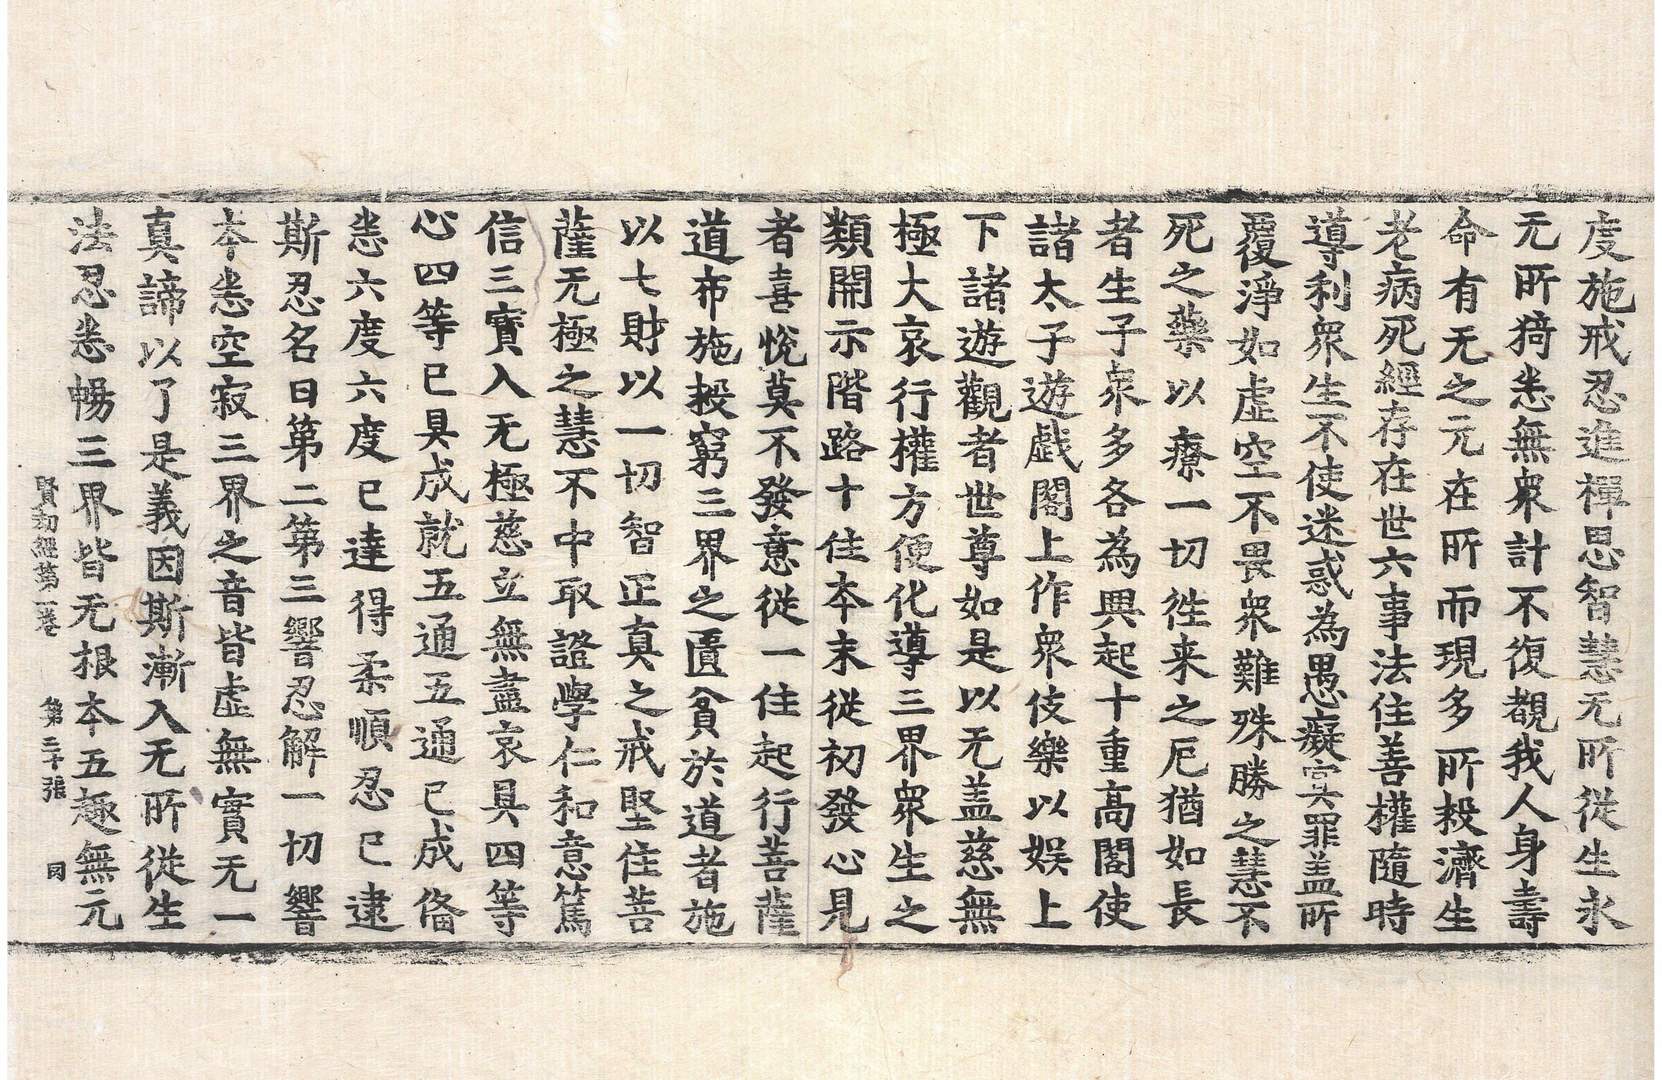 度施戒忍進禪思智慧无所從生永
无所猗恙無衆計不復覩我人身壽
命有无之元在所而現多所投濟生
老病死經存在世六事法住善權隨時
導利衆生不使迷惑為愚癡冥罪盖所
覆淨如虛空不畏衆難殊勝之慧不
死之藥以療一切徃来之厄猶如長
者生子衆多各為興起十重高閣使
諸太子遊戯閣上作衆伎樂以娛上
下諸遊觀者世尊如是以无盖慈無
極大哀行權方便化導三界衆生之
類開示階路十住本末從初發心見
者喜悅莫不發意從一住起行菩薩
道布施投窮三界之匱貧於道者施
以七財以一切智正真之戒堅住菩
薩无極之慧不中取證學仁和意篤
信三寶入无極慈立無盡哀具四等
心四等已具成就五通五通已成俻
恙六度六度已達得柔順忍已逮
斯忍名曰第二第三響忍解一切響
本恙空寂三界之音皆虛無實无一
真諦以了是義因斯漸入无所從生
法忍恙暢三界皆无根本五趣無元
賢劫經第一卷 第二十張 同